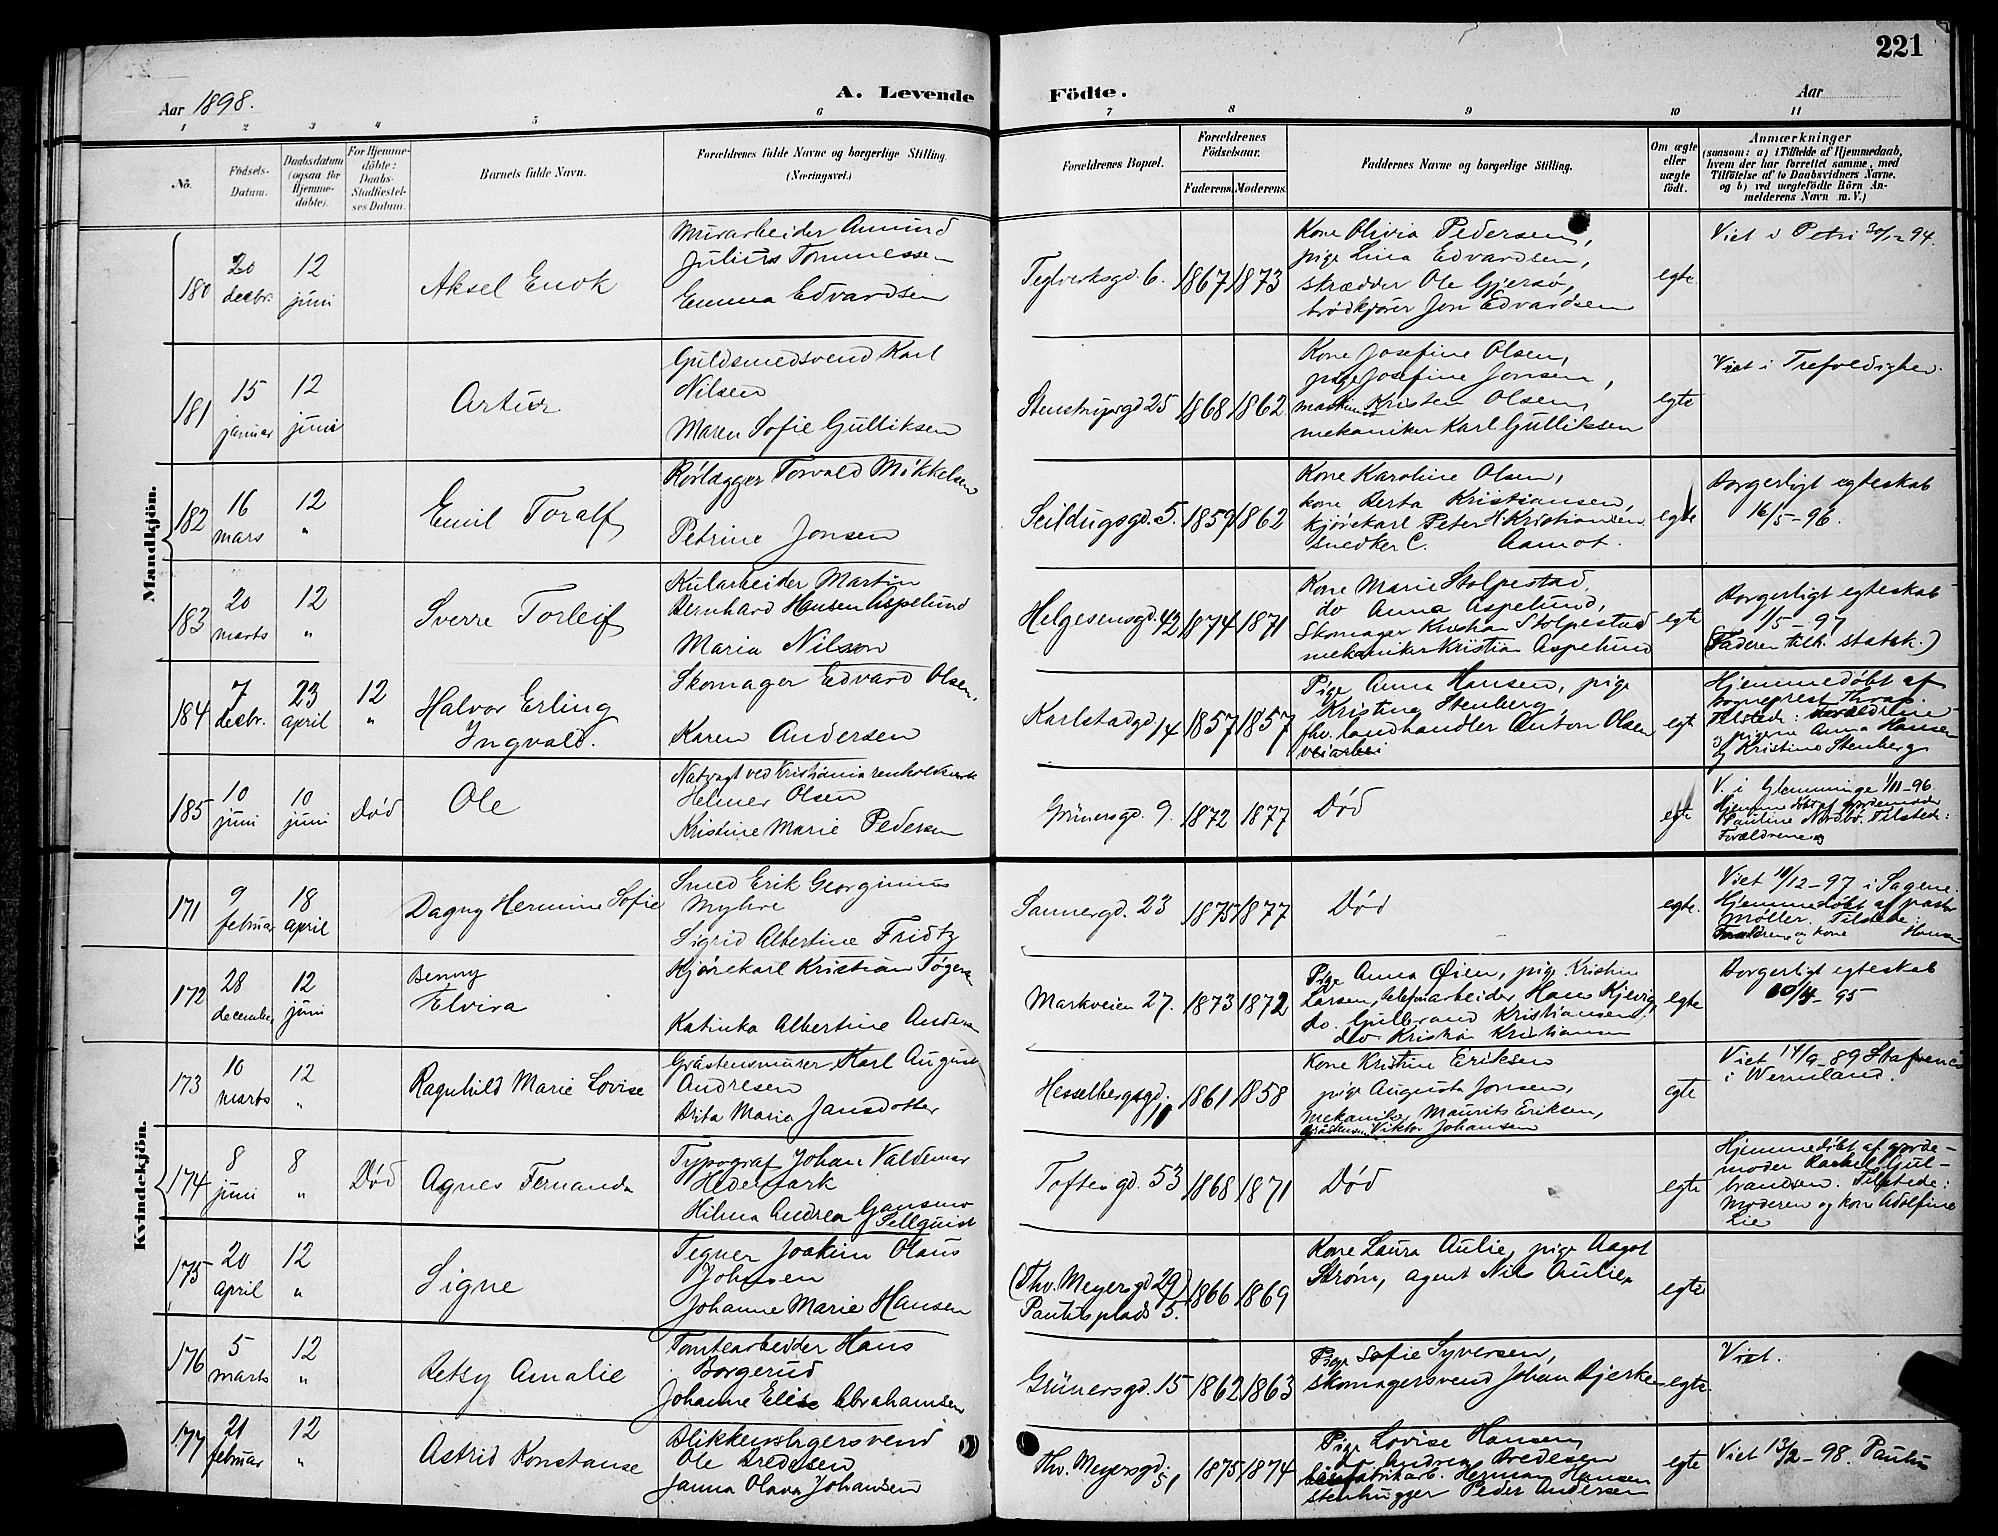 221
Aar 1898.
A. Levende
Födte.
Aar
1 2 3 4 5 6 7 8 9 10 11
No.
Födsels-Datum.
Daabsdatum (ogsaa for Hjemme-döbte).
For Hjemme-döbte: Daabs-Stadfæstel-ses Datum.
Barnets fulde Navn.
Forældrenes fulde Navne og borgerlige Stilling. (Næringsvei.)
Forældrenes Bopæl.
Forældrenes Födselsaar.
Faderens. Moderens.
Faddernes Navne og borgerlige Stilling.
Om ægte eller uægte födt.
Anmærkninger
(saasom: a) i Tilfælde af Hjemmedaab, hvem der har forrettet samme, med Tilföielse af to Daabsvidners Navne, og b) ved uægtefödte Börn An-melderens Navn m. V.)
Mandkjön.
180
20 decbr.
12 juni
Aksel Enok
Murarbeider Amund
Julius Tommessen
Emma Edvardsen
Teglverksgd. 6.
1867 1873
Kone Olivia Pedersen,
pige Lina Edvardsen,
skrædder Ole Gjersø,
brødkjører Jon Edvardsen
egte
Viet i Petri 30/12 94.
181
15 januar
12 juni
Artur
Guldsmedsvend Karl
Nilsen
Maren Sofie Gulliksen
Stenstrupsgd 25
1868 1862
Kone Josefine Olsen,
pige Josefine Jonsen,
Kristen Olsen,
mekaniker Karl Gulliksen
egte
Viet i Trefoldighed.
182
16 mars
12 "
Emil Toralf
Rørlægger Torvald Mikkelsen
Petrine Jonsen
Seildugsgd. 5.
1859 1862
Kone Karoline Olsen,
kone Berta Kristiansen,
kjørekarl Peter Kristiansen
snedker C. Aamot.
egte
Borgerligt egteskab
16/5-96.
183
20 marts
12 "
Sverre Torleif
Kularbeider Martin
Bernhard Hansen Aspelund
Maria Nilson
Helgesensgd. 42
1874 1871
Kone Marie Stolpestad
do Anna Aspelund,
Skomager Kristian Stolpestad
mekaniker Kristian Aspelund
egte
Borgerligt egteskab
1/5-97
(Faderen tilh. statsk.)
184
7 decbr.
23 april
12 "
Halvor Erling
Ingvald.
Skomager Edvard Olsen,
Karen Andersen
Karlstadgd. 14
1857 1857
Pige Anna Hansen, pige
Kristine Stenberg
fhv. landhandler Anton Olsen
egte
Hjemmedøbt af
sogneprest Thvas.
Tilstede: forældrene
pigerne Anna Hansen
og Kristine Stenberg
185
10 juni
10 juni
Død
Ole
Natvagt ved Kristiania renholdsverk
Helmer Olsen
Kristine Marie Pedersen
Grünersgd. 9.
1872 1877
Død
egte
V. i Glemminge 1/11-96.
Hjemmedøbt af jordemoder
Pauline Nordbø. Tilstede:
Forældrene
Kvindekjön.
171
9 februar
18 april
Dagny Hermine Sofie
Smed Erik Georginius
Myhre
Sigrid Albertine Fridtz
Sannergd. 23
1875 1877
Død
egte.
Viet 10/12-97 i Sagene.
Hjemmedøbt af pastor
Møller. Tilstede:
Forældrene og kone Hansen
172
28 december
12 juni
Benny
Elvira
Kjørekarl Kristian Tøgersen
Katinka Albertine Andersen
Markveien 27.
1873 1872
Pige Anna Øien, pige Kristin
Larsen, telefonarbeider Hans Kjevig,
do. Gulbrand Kristiansen,
do Kristian Kristiansen
egte
Borgerligt egteskab
10/4-95
173
10 marts
12 "
Ragnhild Marie Lovise
Gråstensmurer Karl August
Andresen
Brita Maria Jansdotter
Hesselbergsgd. 10
1861 1858
Kone Kristine Eriksen
pige Augusta Jonsen,
Mekaniker Maurits Eriksen,
Viktor Johansen
egte
Viet 14/9-89 Stafvenes
i Wermland.
174
8 juni
8 "
Død
Agnes Fernanda
Typograf Johan Valdemar
Hedemark
Hilma Andrea Gansmo
Sellquist
Toftesgd. 53
1868 1871
Død
egte
Hjemmedøbt af jorde-
moder Rachel Gul-
brandsen. Tilstede:
Moderen og kone Adolfine
Lie
175
20 april
12 "
Signe
Tegner Joakim Olaus
Johnsen
Johanne Marie Hansen
(Thv. Meyersgd 29)
Paulusplads 5.
1866 1869
Kone Laura Aulie, pige Aagot
Strøm, agent Nils Aulie.
egte
176
5 marts
12 "
Betsy Amalie
Tomtearbeider Hans
Borgerud
Johanne Elise Abrahamsen
Grünersgd. 15
1862 1863
Pige Sofie Syversen,
skomagersvend Johan Bjerke
egte
Viet.
177
21 februar
12 "
Astrid Konstanse
Blikkenslagersvend
Ole Bredesen
Janna Olava Johansen
Thv. Meyersgd. 51
1875 1874
Pige Lovise Hansen,
do Andrea Bredesen
fabrikarb. Herman Hansen
stenhugger Peder Andersen
egte
Viet 13/2-98. Paulus